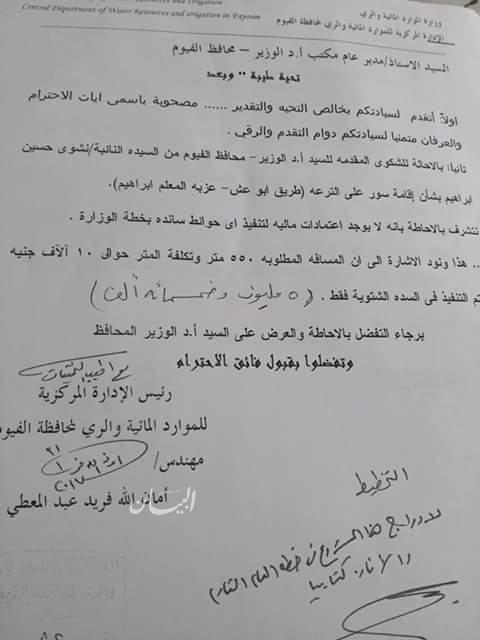 وزارة الموارد المائية والري
Central Department of Water Resources and Irrigation in Fayoum
الإدارة المركزية للموارد المائية والري لمحافظة الفيوم
السيد الاستاذ/مدير عام مكتب أ.د الوزير – محافظ الفيوم
تحية طيبة ,, وبعد
اولاً: أتقدم لسيادتكم بخالص التحيه والتقدير ...... مصحوبة باسمى ايات الاحترام
والعرفان متمنيا لسيادتكم دوام التقدم والرقي .
ثانيا: بالاحالة للشكوى المقدمه للسيد أ.د الوزير– محافظ الفيوم من السيده النائبة/نشوى حسين
ابراهيم بشأن إقامة سور على الترعه (طريق ابو عش- عزبه المعلم ابراهيم).
نتشرف بالاحاطة بانه لا يوجد اعتمادات ماليه لتنفيذ اى حوائط سانده بخطة الوزارة .
.. هذا ونود الاشارة الى ان المسافه المطلوبه ٥٥٠ متر وتكلفة المتر حوالى ١٠ آلآف جنيه
تم التنفيذ فى السده الشتوية فقط .
(٥ مليون وخمسمائه ألف)
برجاء التفضل بالاحاطة والعرض على السيد أ.د الوزير المحافظ
وتفضلوا بقبول فائق الاحترام
مع اطيب التمنيات
رئيس الإدارة المركزية
للموارد المائية والري لمحافظة الفيوم
مهندس/
٢٠١٧
أمان الله فريد عبد المعطي
البيان
التخطيط
لادراج هذا المشروع فى خطة العام القادم
والافاده كتابيا